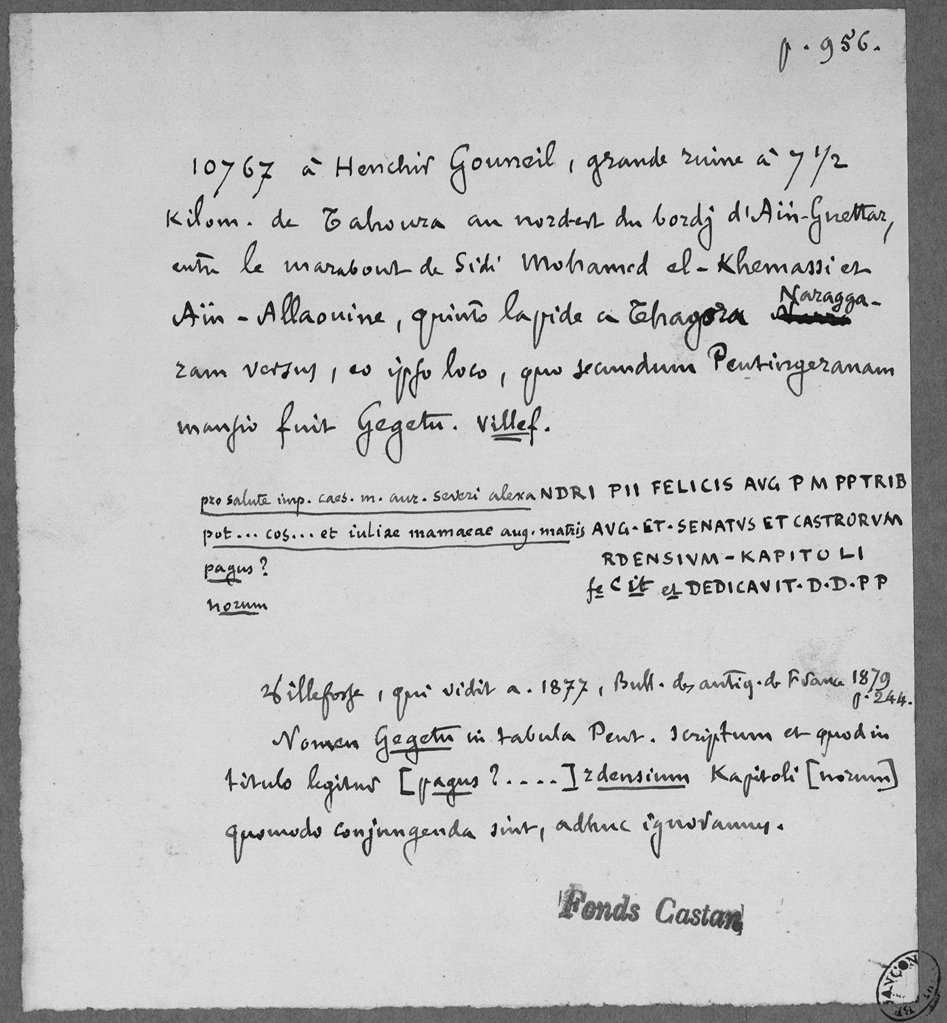 p. 956.
10767 à Henchir Gouneil, grande ruine à 7 1/2
kilom. de Tahoura au nord-est du bordj d'Aïn-Guettar,
entre le marabout de Sidi Mohamed el-Khemassi et
Aïn-Allaouine, quinto lapide a Thagora Naragga-
ram versus, eo ipso loco, quo secundum Peutingeranam
mansio fuit Gegetu. Villef.
pro salute imp. caes. m. aur. severi alexaNDRI PII FELICIS AVG P M PP TRIB
pot... cos... et iuliae mamaeae aug. matris AVG·ET·SENATVS ET CASTRORVM
pagus? RDENSIVM-KAPITOLI
norum feCit et DEDICAVIT·D·D·PP
Villefosse, qui vidit a. 1877, Bull. des antiq. de France 1879
p. 244.
Nomen Gegetu in tabula Peut. scriptum et quod in
titulo legitur [pagus?....]rdensium Kapitoli[norum]
quomodo conjungenda sint, adhuc ignoramus.
Fonds Castan